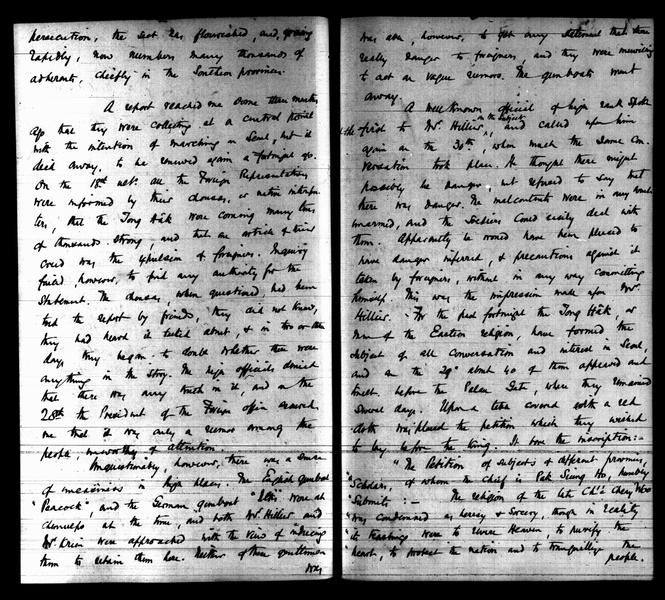 persecution, the sect has flourished, and, growing
rapidly, now numbers many thousands of
adherents, chiefly in the Southern provinces.
A report reached me some three months
ago that they were collecting at a central point
with the intention of marching on Seoul, but it
died away, to be renewed again a fortnight ago.
On the 18th ult. all the Foreign Representatives
were informed by their chousas, or native interpre-
ters, that the Tong Hâk were coming many tens
of thousands strong, and that an article of their
creed was the expulsion of foreigners. Inquiry
failed, however, to find any authority for the
statement. The chousas, when questioned, had been
told the report by friends, they did not know,
they had heard it talked about, & in two or three
days they began to doubt whether there were
anything in the story. The high officials denied
that there was any truth in it, and on the
28th the President of the Foreign Office assured
me that it was only a rumor among the
people, unworthy of attention.
Unquestionably, however, there was a sense
of uneasiness in high places. The English gunboat
"Peacock" and the German gunboat "Iltis" were at
Chemulpo at the time, and both Mr. Hillier and
Mr. Krien were approached with the view of inducing
them to retain them here. Neither of these gentlemen
was
was able, however, to get any statement that there
really danger to foreigners, and they were unwilling
to act on vague rumors. The gunboats went
away.
A well known official of high rank spoke
first to Mr. Hillier on the subject, and called upon him
again on the 30th, when much the same con-
versation took place. He thought there might
possibly be danger, but refused to say that
there was danger. The malcontents were in any event
unarmed, and the soldiers could easily deal with
them. Apparently he would have been pleased to
have danger inferred, & precautions against it
taken by foreigners, without in any way committing
himself. This was the impression made upon Mr.
Hillier. For the past fortnight the Tong Hâk, or
Men of the Eastern religion, have formed the
subject of all conversation and interest in Seoul,
and on the 29th about 40 of them appeared and
knelt before the Palace Gate, where they remained
several days. Upon a table covered with a red
cloth was placed the petition which they wished
to lay before the King. It bore the inscription:—
"The Petition of subjects of different provinces,
"Scholars, of whom the chief is Pak Seung Ho, humbly
"Submits: — The religion of the late Ch'oe Chey Woo
"was condemned as heresy & sorcery, though in reality
"its teachings were to revere Heaven, to purify the
"heart, to protect the nation and to tranquillize the
people.